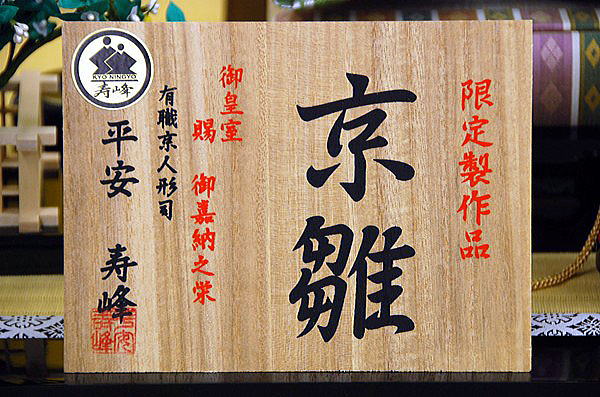 限定製作品
京雛
御皇室
賜 御嘉納之栄
有職京人形司
平安 寿峰
KYO NINGYO
寿峰